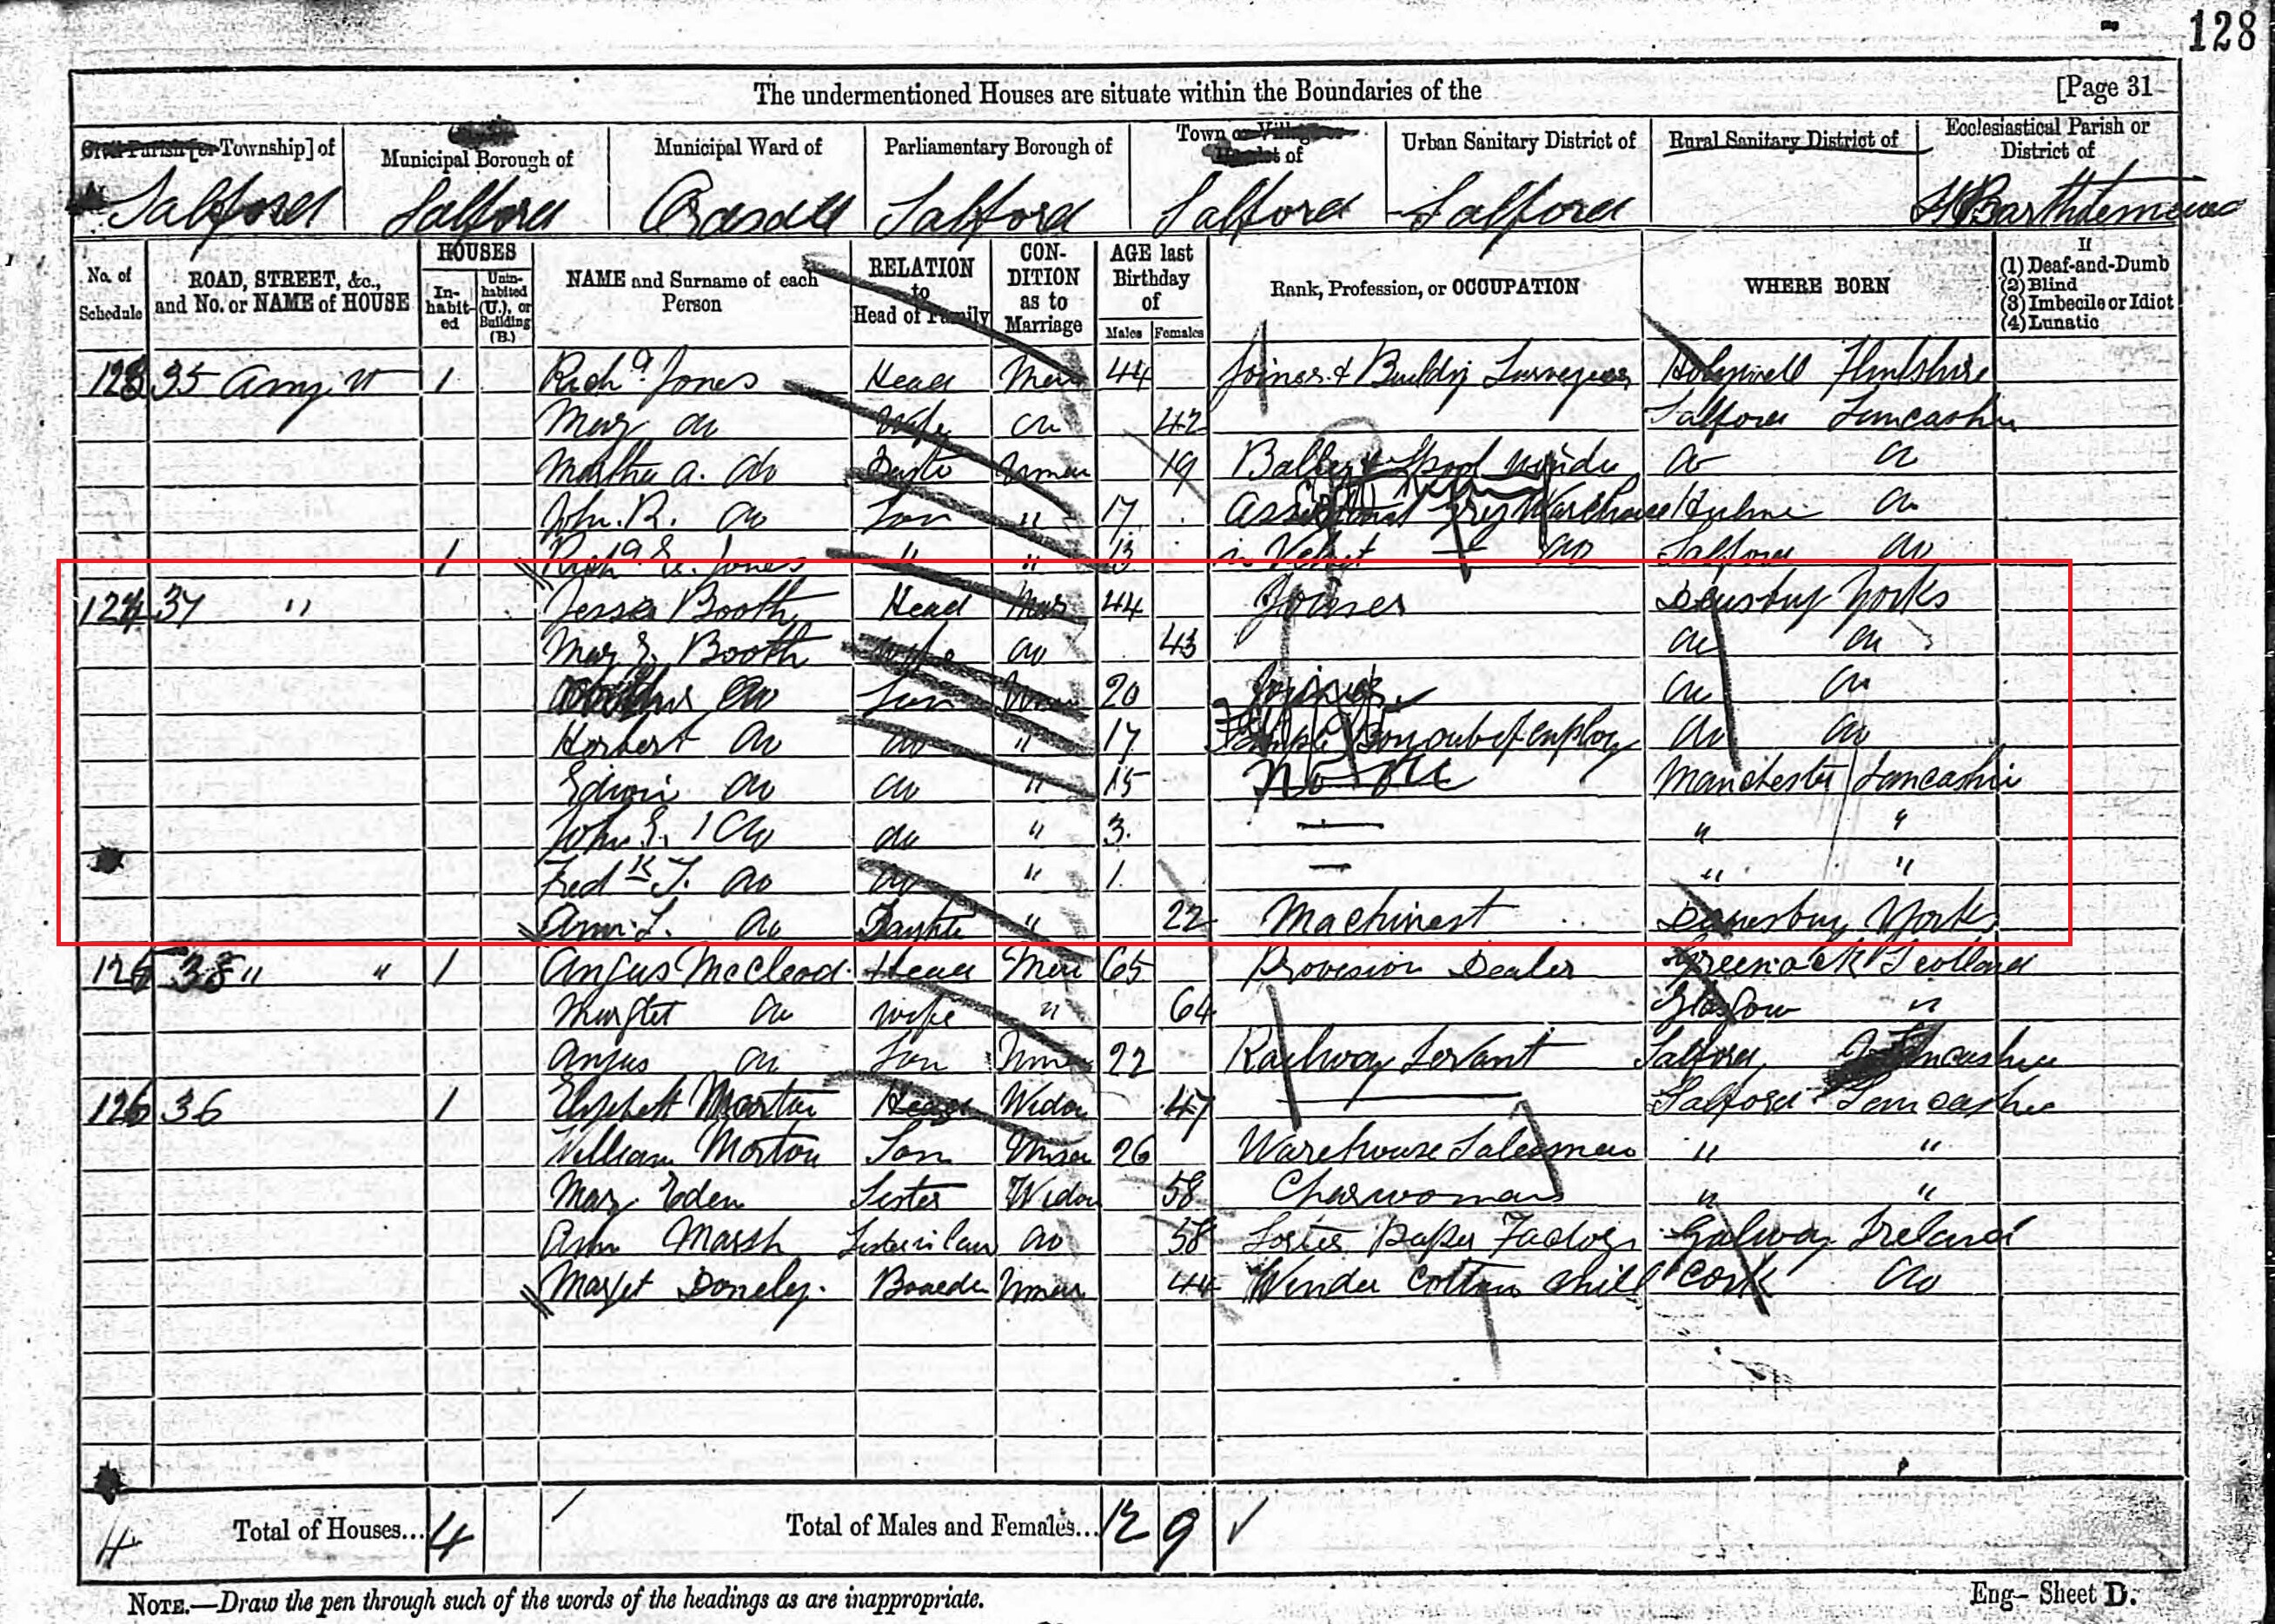 128
The undermentioned Houses are situate within the Boundaries of the [Page 31
Civil Parish [or Township] of Municipal Borough of Municipal Ward of Parliamentary Borough of Town or Village or of Urban Sanitary District of Rural Sanitary District of Ecclesiastical Parish or District of
Salford Salford Ordsall Salford Salford Salford St Bartholomews
No. of Schedule ROAD, STREET, &c., and No. or NAME of HOUSE HOUSES In-habit-ed Unin-habited (U.), or Building (B.) NAME and Surname of each Person RELATION to Head of Family CON-DITION as to Marriage AGE last Birthday of Males Females Rank, Profession, or OCCUPATION WHERE BORN If (1) Deaf-and-Dumb (2) Blind (3) Imbecile or Idiot (4) Lunatic
123 35 Amy St 1 Richd Jones Head Mar 44 Joiner & Buildg Surveyor Holywell Flintshire
Mary do Wife do 42 Salford Lancashire
Martha A. do Daughtr Unmar 19 do do
John. R. do Son " 17 Hulme do
1 Richd E. Jones " " 13 in Velvet do Salford do
124 37 " Jesse Booth Head Mar 44 Joiner Dewsbury Yorks
Mary E. Booth Wife do 43 do do
do Son Unm 20 Joiner do do
Herbert do do " 17 out of employ do do
Edwin do do " 15 Manchester Lancashire
John. E. do do " 3. — " "
Fredk J. do do " 1. — " "
Ann. L. do Daughter " 22 Machinest Dewsbury York
125 38 " " 1 Angus McCleod. Head Mar 65 Provision Dealer Greenock Scotland
Margret do wife " 64 Glasgow "
Angus do Son Unm 22 Railway Servant Salford Lancashire
126 36 1 Elizabeth Morton Head Widow 47 — Salford Lancashire
William Morton Son Unmar 26 Warehouse Salesman " "
Mary Eden Sister Widow 58 Charwoman " "
Ann Marsh Sister in law do 58 Paper Factory Galway Ireland
Margt Doneley. Boarder Unmar 44 Winder Cotton Mill Cork do
4 Total of Houses... 4 Total of Males and Females... 12 9
NOTE.—Draw the pen through such of the words of the headings as are inappropriate. Eng— Sheet D.